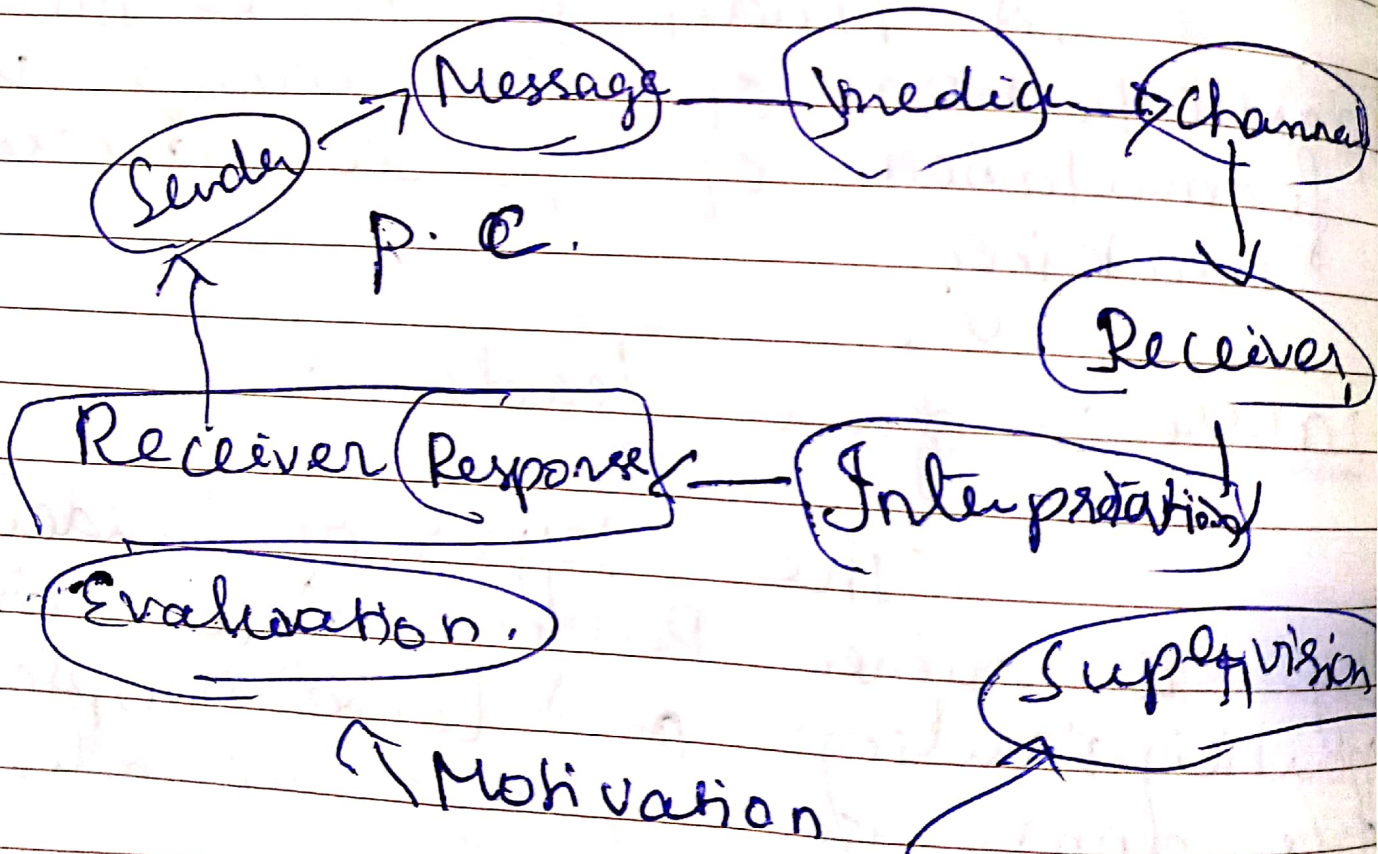 Message media Channel
Sender
P. C.
Receiver
Receiver Response Interpretation
Evaluation.
Supervision
Motivation